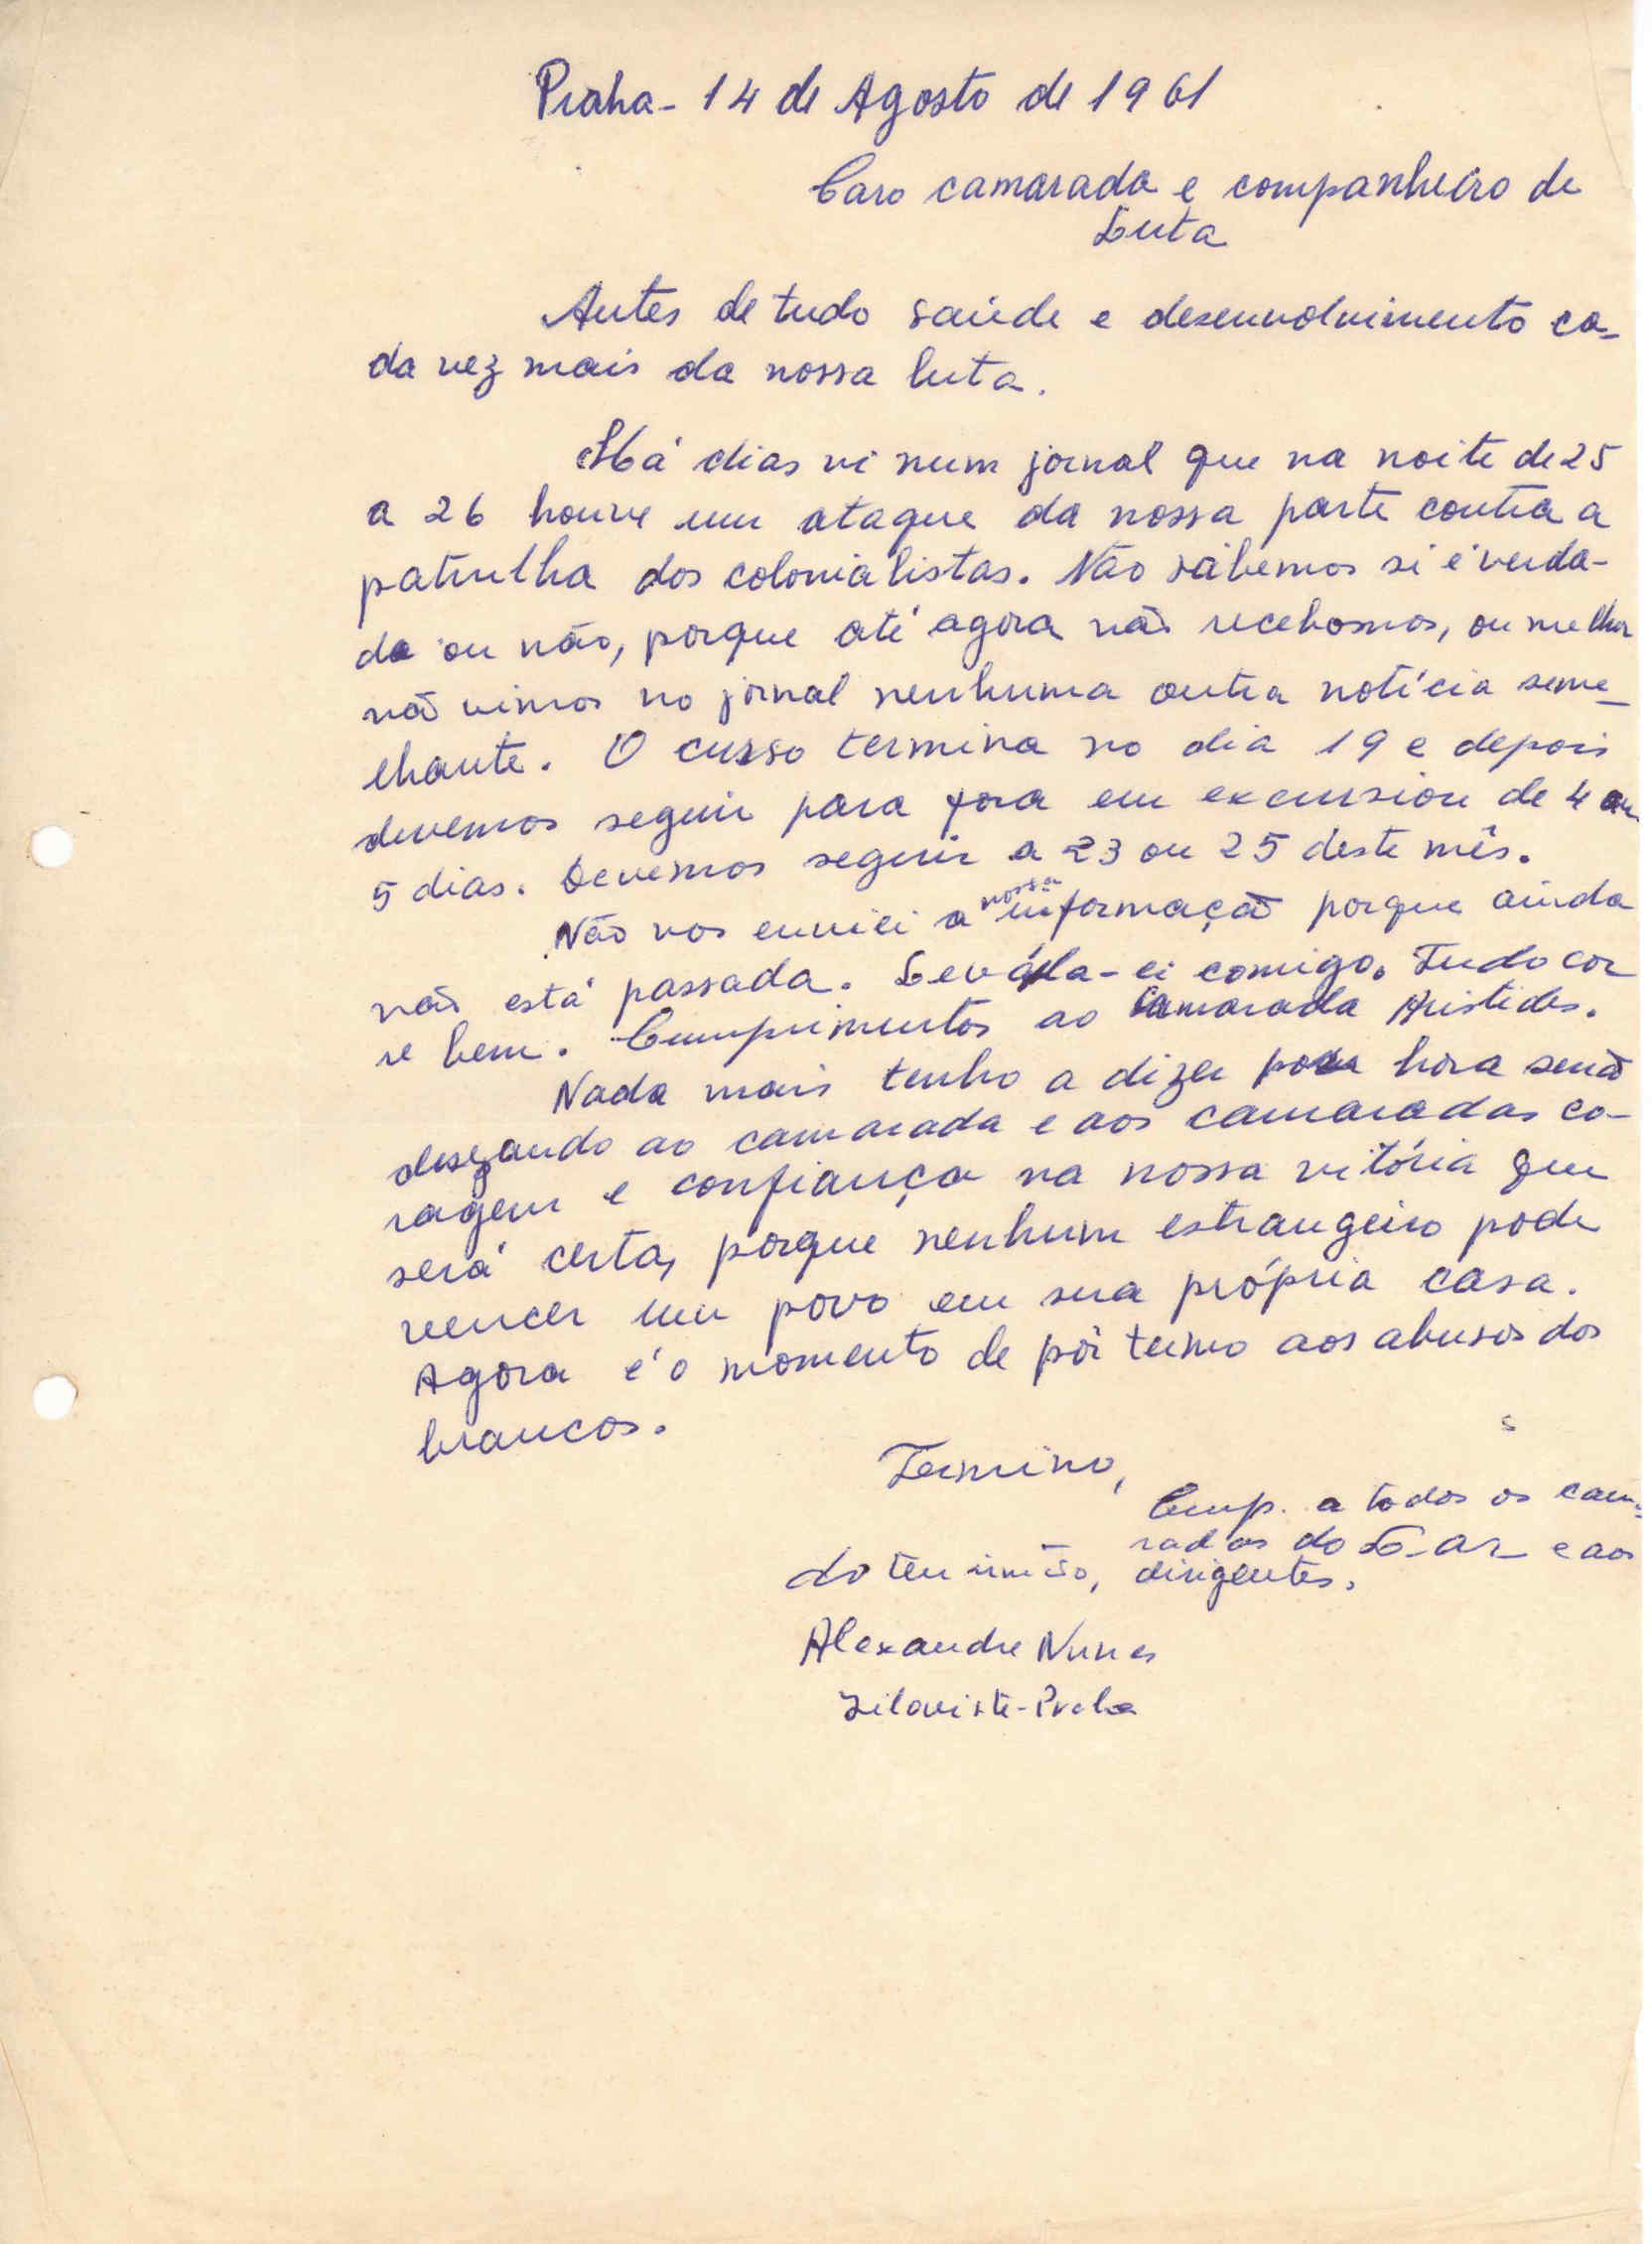 Praha - 14 de Agosto de 1961
Caro camarada e companheiro de
Luta
Antes de tudo saúde e desenvolvimento ca-
da vez mais da nossa luta.
Há dias vi num jornal que na noite de 25
a 26 houve um ataque da nossa parte contra a
patrulha dos colonialistas. Não sabemos si é verda-
de ou não, porque até agora não recebemos, ou melhor
não vimos no jornal nenhuma outra notícia seme-
lhante. O curso termina no dia 19 e depois
devemos seguir para fora em excursion de 4 ou
5 dias. Devemos seguir a 23 ou 25 deste mês.
Não vos enviei a nossa informação porque ainda
não está passada. Levála-ei comigo. Tudo cor
re bem. Cumprimentos ao camarada Aristides.
Nada mais tenho a dizer por hora senão
desejando ao camarada e aos camaradas co-
ragem e confiança na nossa vitória que
será certa, porque nenhum estrangeiro pode
vencer um povo em sua própria casa.
Agora é o momento de pôr termo aos abusos dos
brancos.
Termino,
Cump. a todos os cama
radas do Lar e aos
do teu irmão, dirigentes.
Alexandre Nunes
Praha